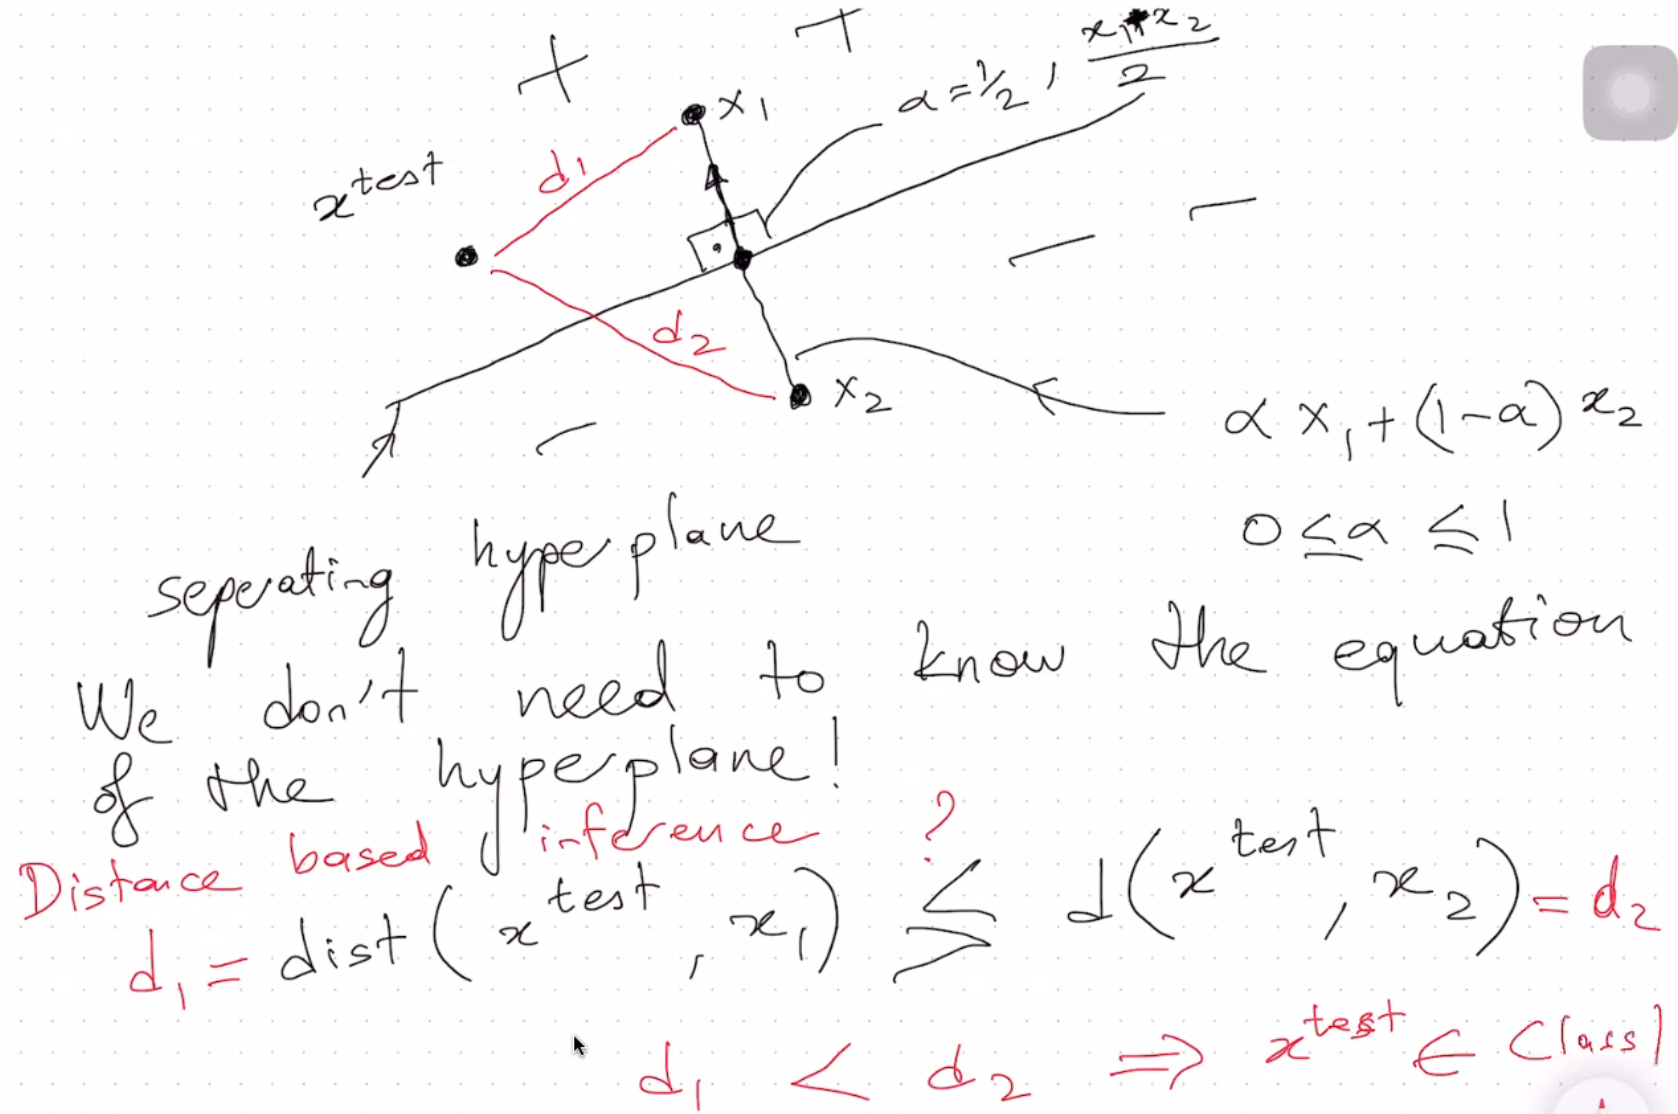 + +
x₁
α = 1/2 , (x₁ + x₂)/2
x^test
d₁
d₂
x₂
α x₁ + (1-α) x₂
0 ≤ α ≤ 1
seperating hyperplane
We don't need to know the equation
of the hyperplane!
Distance based inference
?
d₁ = dist( x^test , x₁) ≶ d(x^test , x₂) = d₂
d₁ < d₂ ⇒ x^test ∈ Class 1